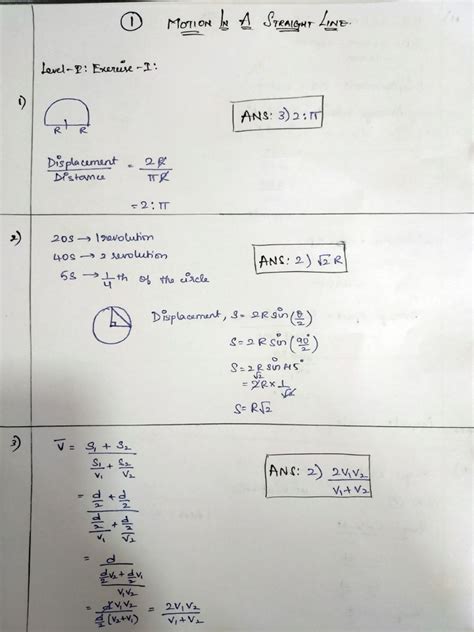 ① MOTION IN A STRAIGHT LINE.
Level-I: Exercise-I:
1)
R R
ANS: 3) 2:π
Displacement / Distance = 2R / πR
= 2:π
2)
20S → 1 revolution
40S → 2 revolution
5S → 1/4 th of the circle
ANS: 2) √2 R
Displacement, S = 2R sin (θ/2)
S = 2R sin (90°/2)
S = 2R sin 45°
= 2R × 1/√2
S = R√2
3)
V̄ = (S₁ + S₂) / (S₁/V₁ + S₂/V₂)
ANS: 2) 2V₁V₂ / (V₁+V₂)
= (d/2 + d/2) / ((d/2)/V₁ + (d/2)/V₂)
= d / ((d/2 V₂ + d/2 V₁) / V₁V₂)
= dV₁V₂ / (d/2 (V₂+V₁)) = 2V₁V₂ / (V₁+V₂)